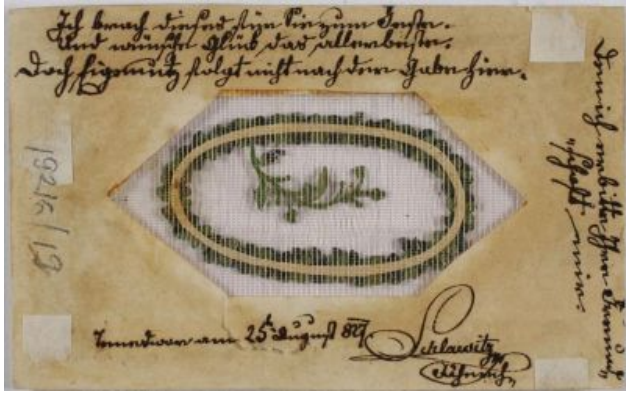 Ich brach dieses für Sie zum Feste.
Und wünsche Glück das allerbeste.
Doch Eigennutz folgt nicht nach der Gabe hier.
Denn ich erbitte Ihre Freund„
„schaft mir.
Temeswar am 25t August 827
Schlawitz